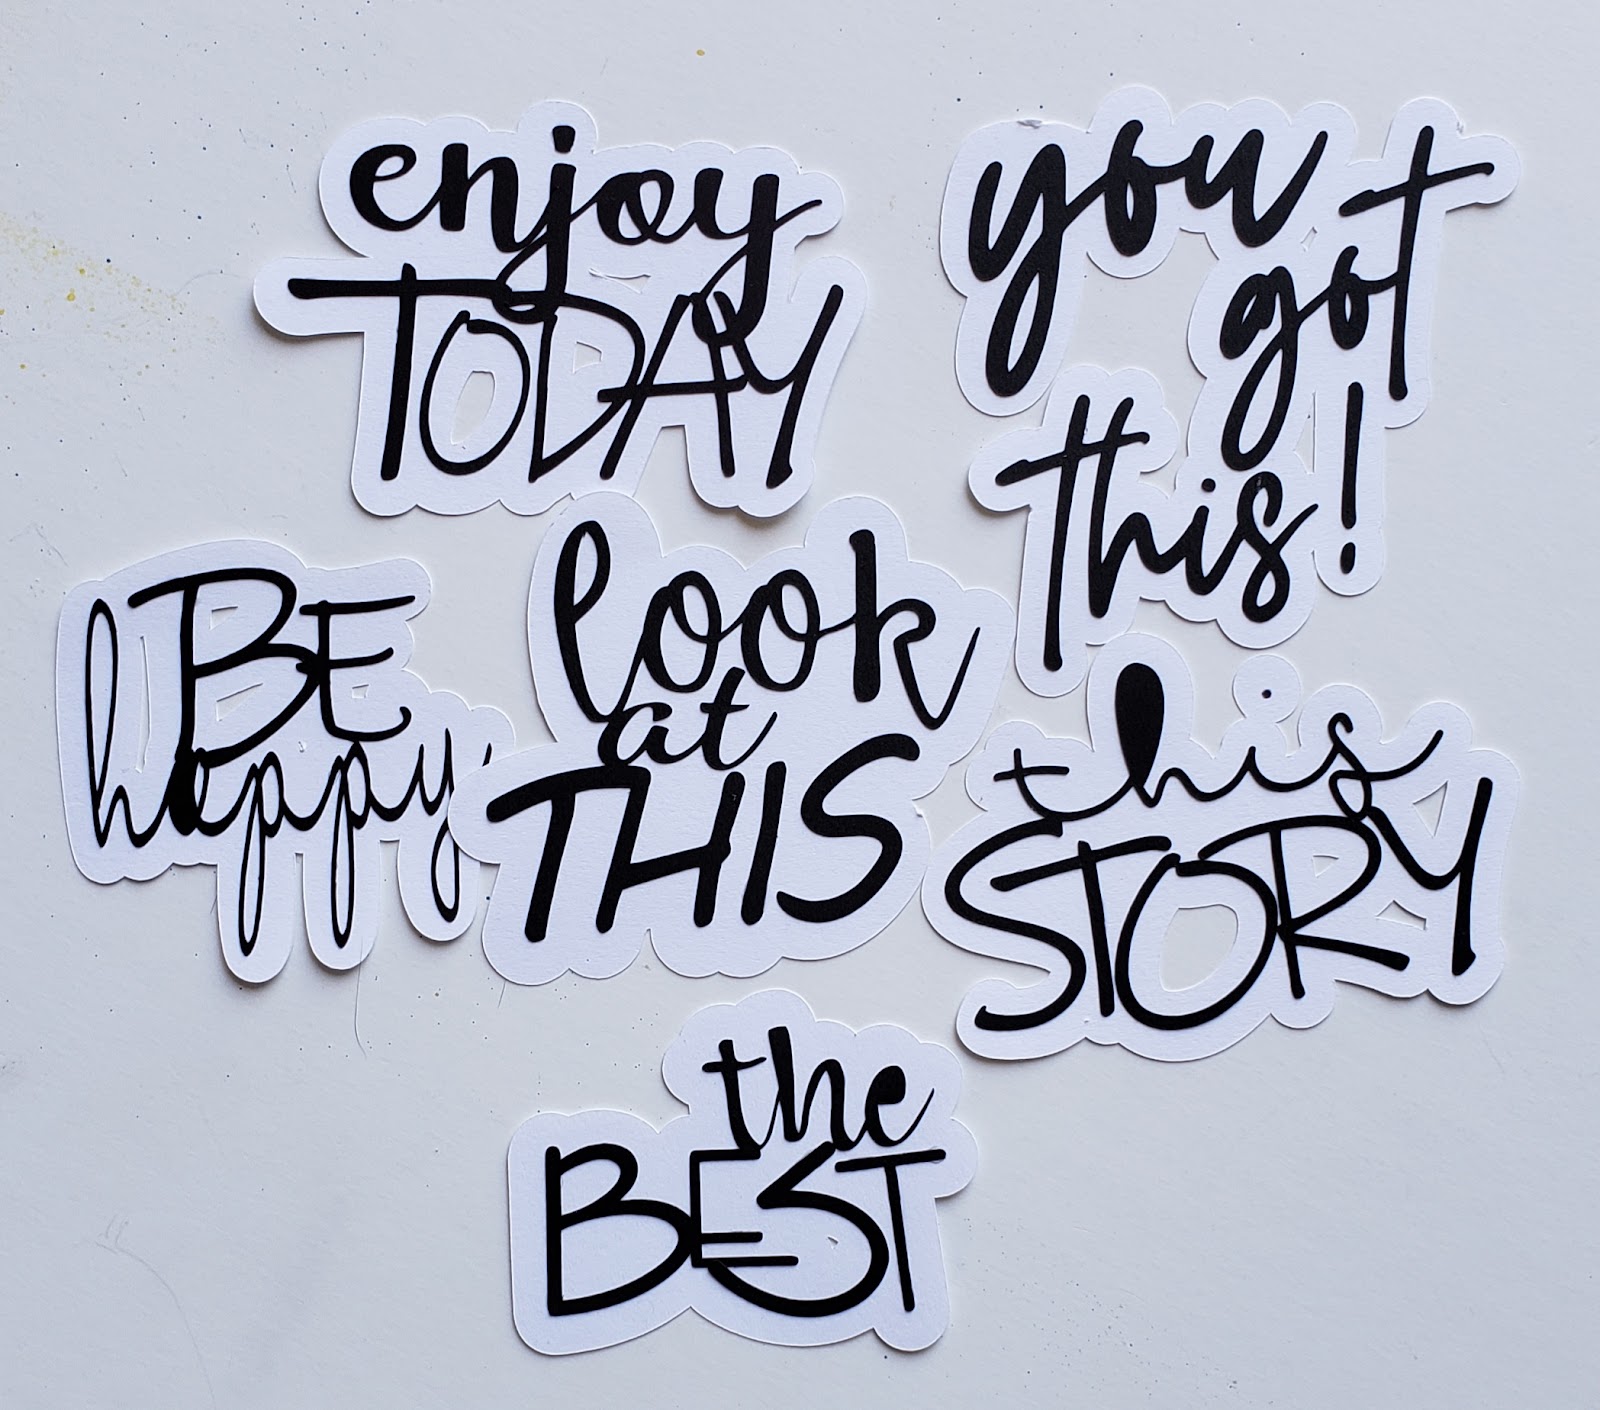 enjoy
TODAY
you
got
this!
BE
happy
look
at
THIS
this
STORY
the
BEST